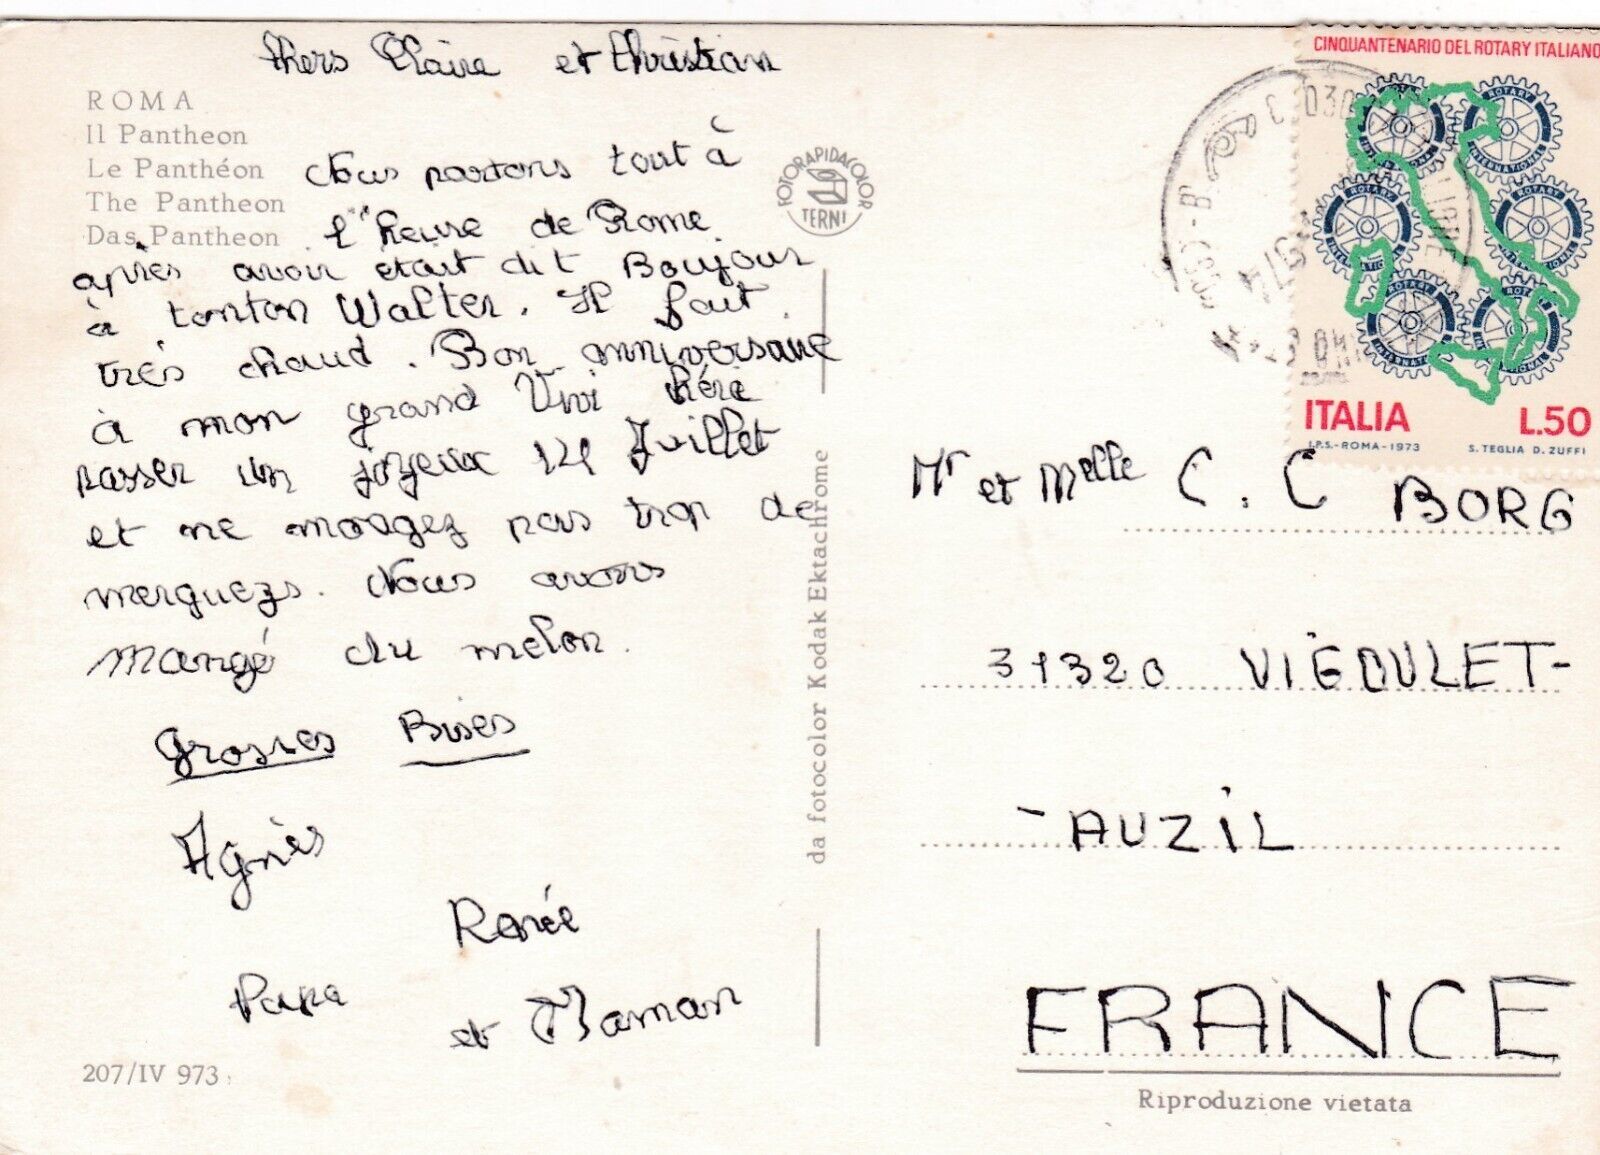 Chers Claire et Christian
ROMA
Il Pantheon
Le Panthéon
The Pantheon
Das Pantheon
Nous partons tout à
l'heure de Rome
après avoir était dit Boujour
à tonton Walter. Il fait
très chaud. Bon anniversaire
à mon grand Vivi Père
passer un joyeux 14 Juillet
et ne mangez pas trop de
merguezs. Nous avons
mangé du melon.
Grosses Bises
Agnès
Renée
Papa
et Maman
207/IV 973
FOTORAPIDACOLOR
TERNI
da fotocolor Kodak Ektachrome
CINQUANTENARIO DEL ROTARY ITALIANO
ROTARY
INTERNATIONAL
ROTARY
INTERNATIONAL
ROTARY
INTERNATIONAL
ROTARY
INTERNATIONAL
ROTARY
INTERNATIONAL
ROTARY
INTERNATIONAL
ITALIA L.50
I.P.S.-ROMA-1973 S. TEGLIA D. ZUFFI
Mr et Melle C. C BORG
31320 VIGOULET-
-AUZIL
FRANCE
Riproduzione vietata